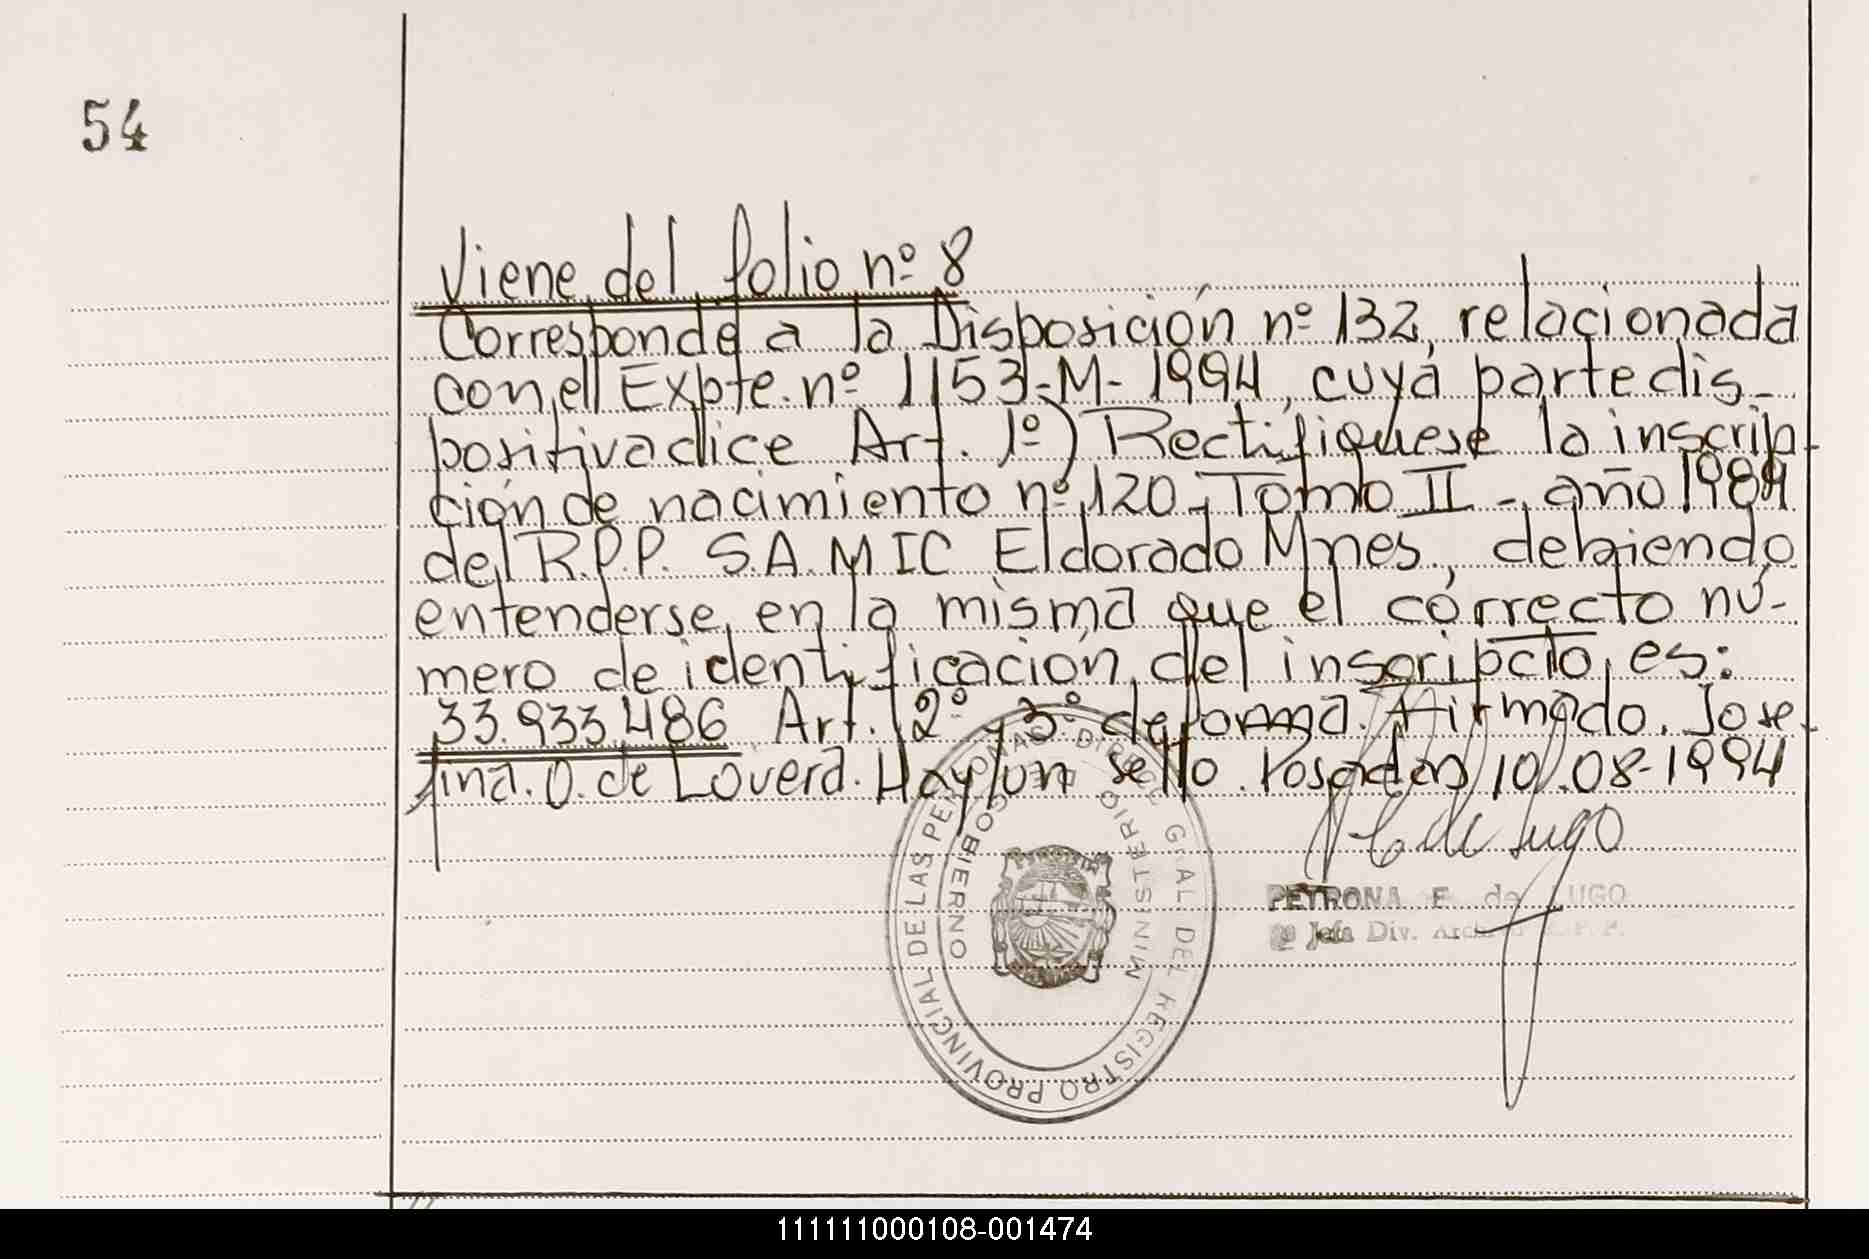 54
Viene del folio nº 8
Corresponde a la Disposición nº 132, relacionada
con el Expte. nº 1153-M-1994, cuya parte dis-
positiva dice Art. 1º) Rectifiquese la inscrip-
ción de nacimiento nº 120 - Tomo II -, año 1989
del R.P.P. S.A.MIC Eldorado Mnes., debiendo
entenderse en la misma que el correcto nú-
mero de identificación del inscripcto, es:
33.933.486 Art. 2º y 3º de forma. Firmado. Jose-
fina. O. de Lovera. Hay un sello. Posadas 10.08-1994
de Lugo
PETRONA F. de LUGO
Jefa Div. Archivo R.P.P.
DIRECC. GRAL DEL REGISTRO PROVINCIAL DE LAS PERSONAS
MINISTERIO GOBIERNO
111111000108-001474